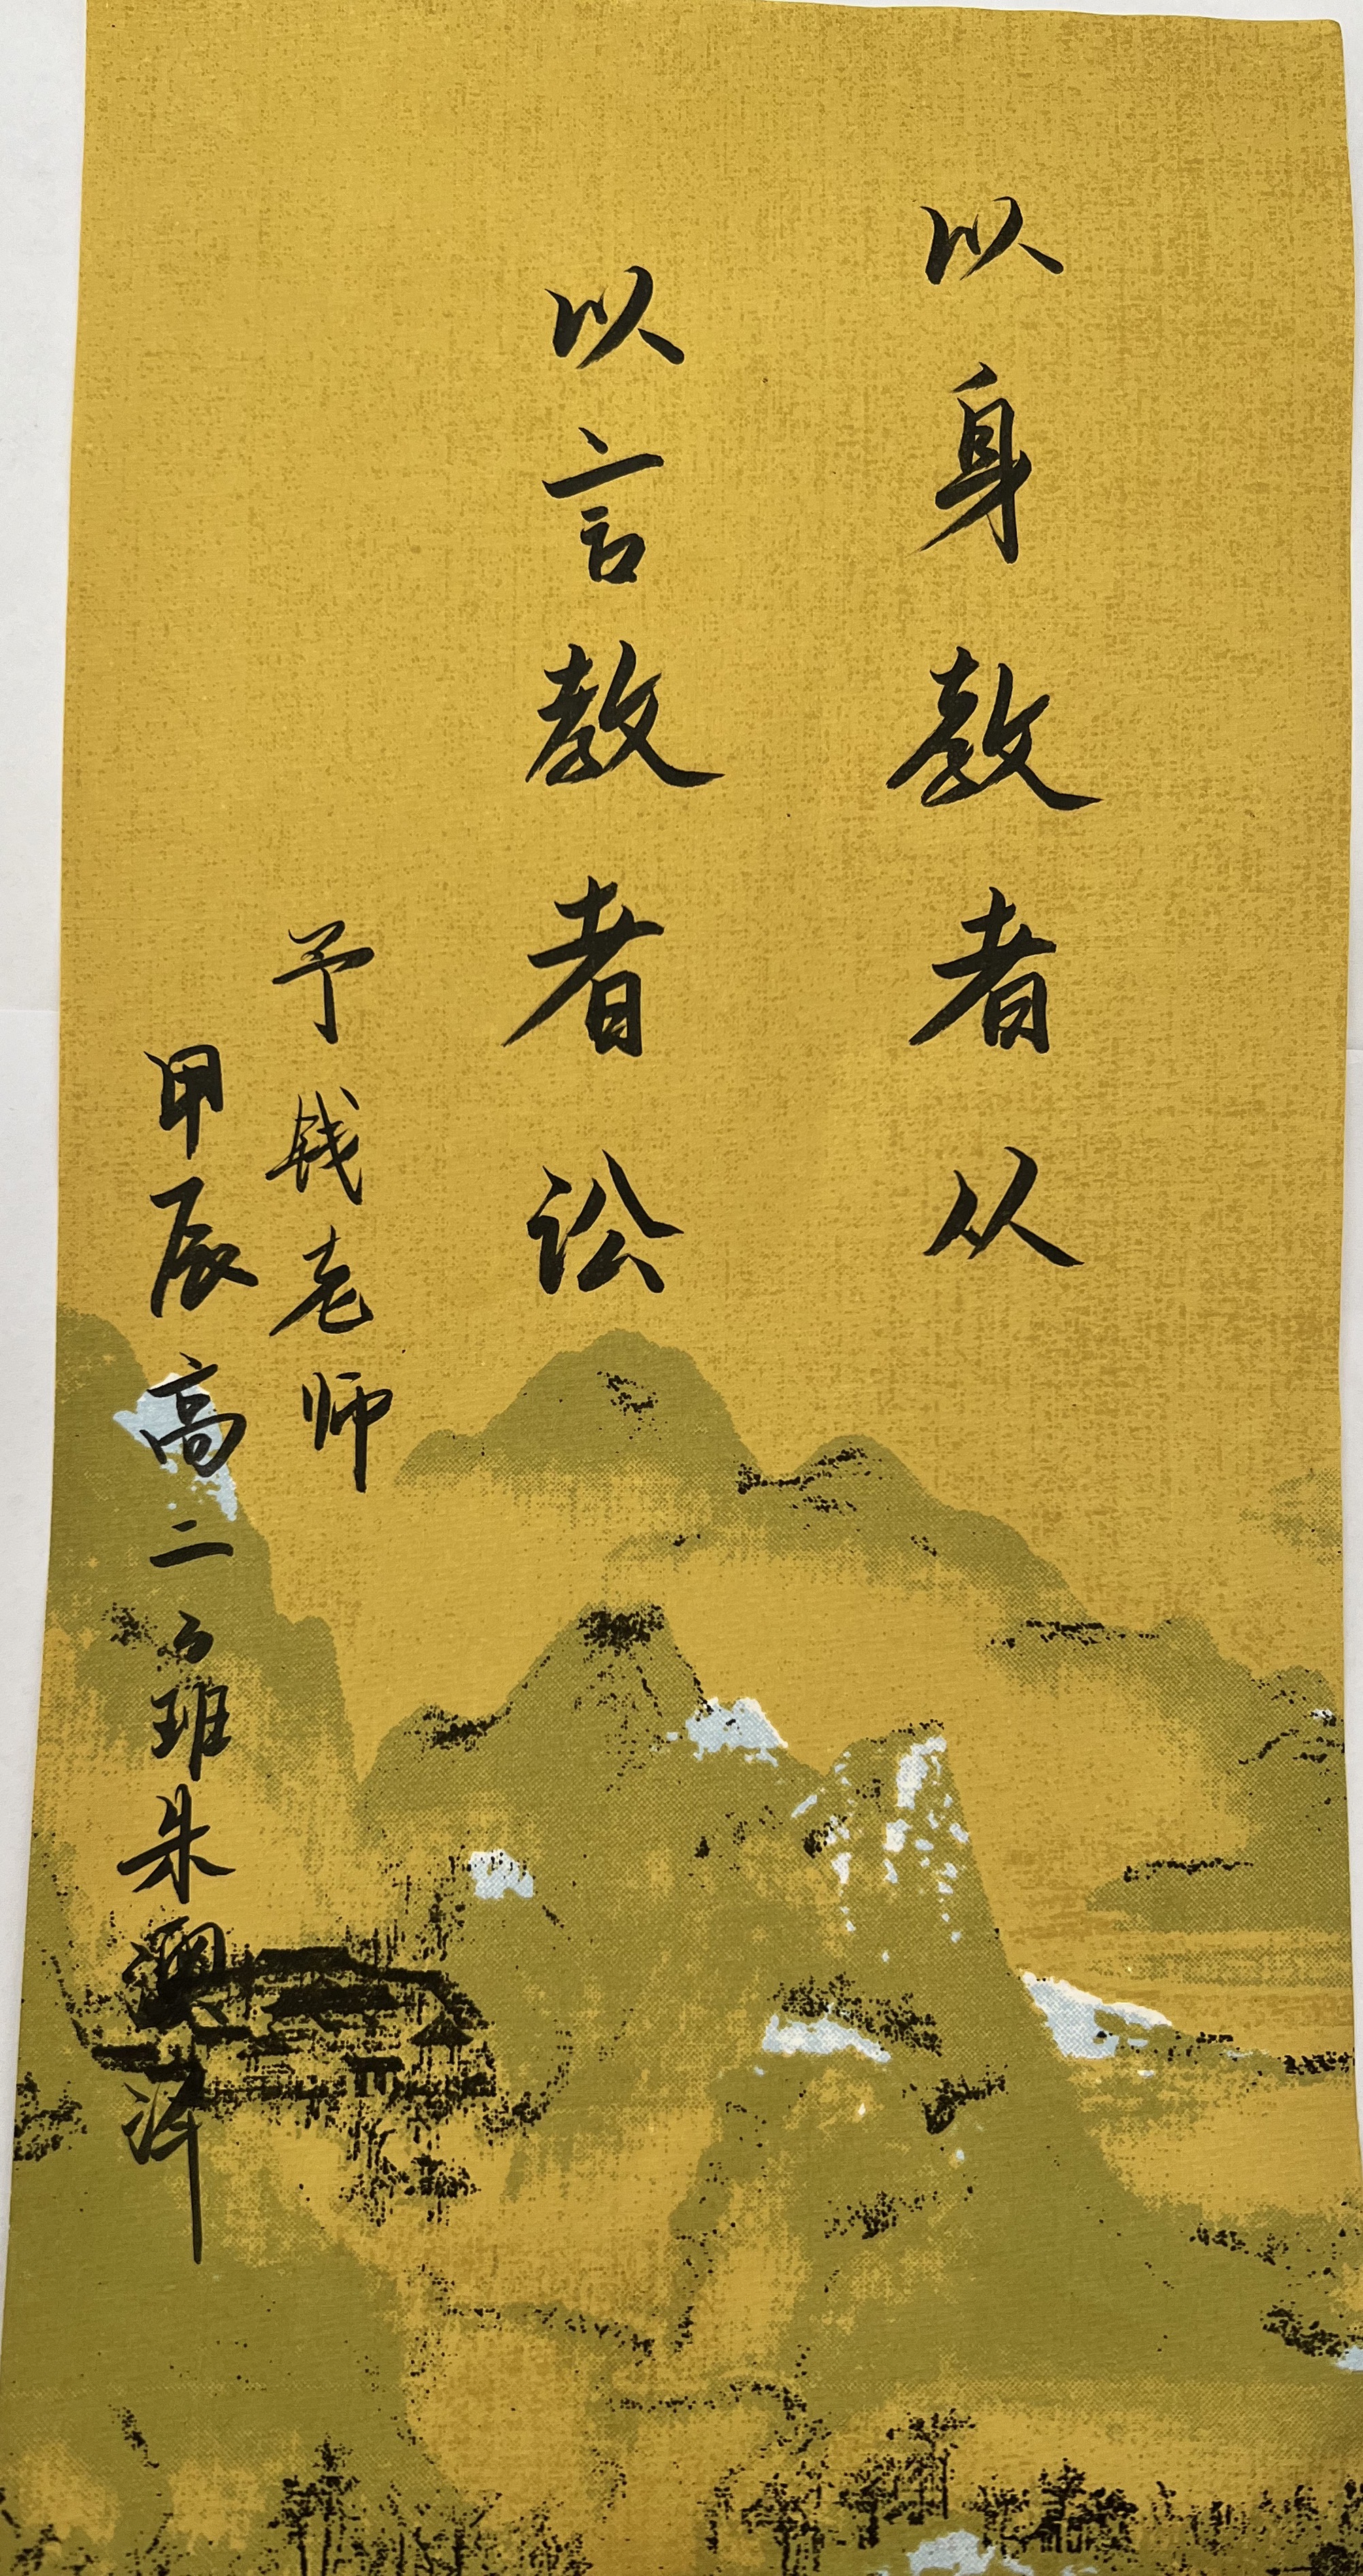 以身教者从
以言教者讼
予钱老师
甲辰高二6班朱澳泽